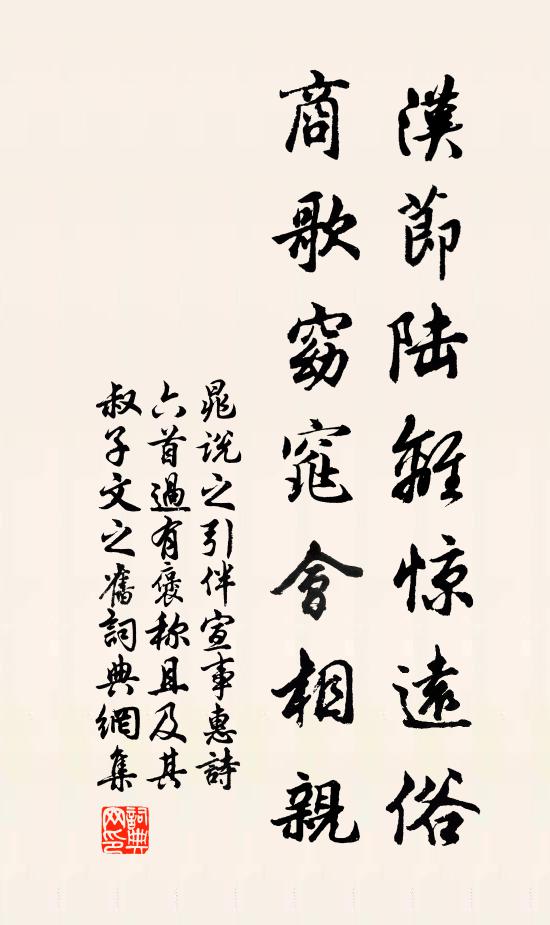 漢節陆離惊遠俗
商歌窈窕會相親
晁说之引伴宣事惠詩
六首過有褒称且及其
叔子文之舊詞典網集
詞典
网印